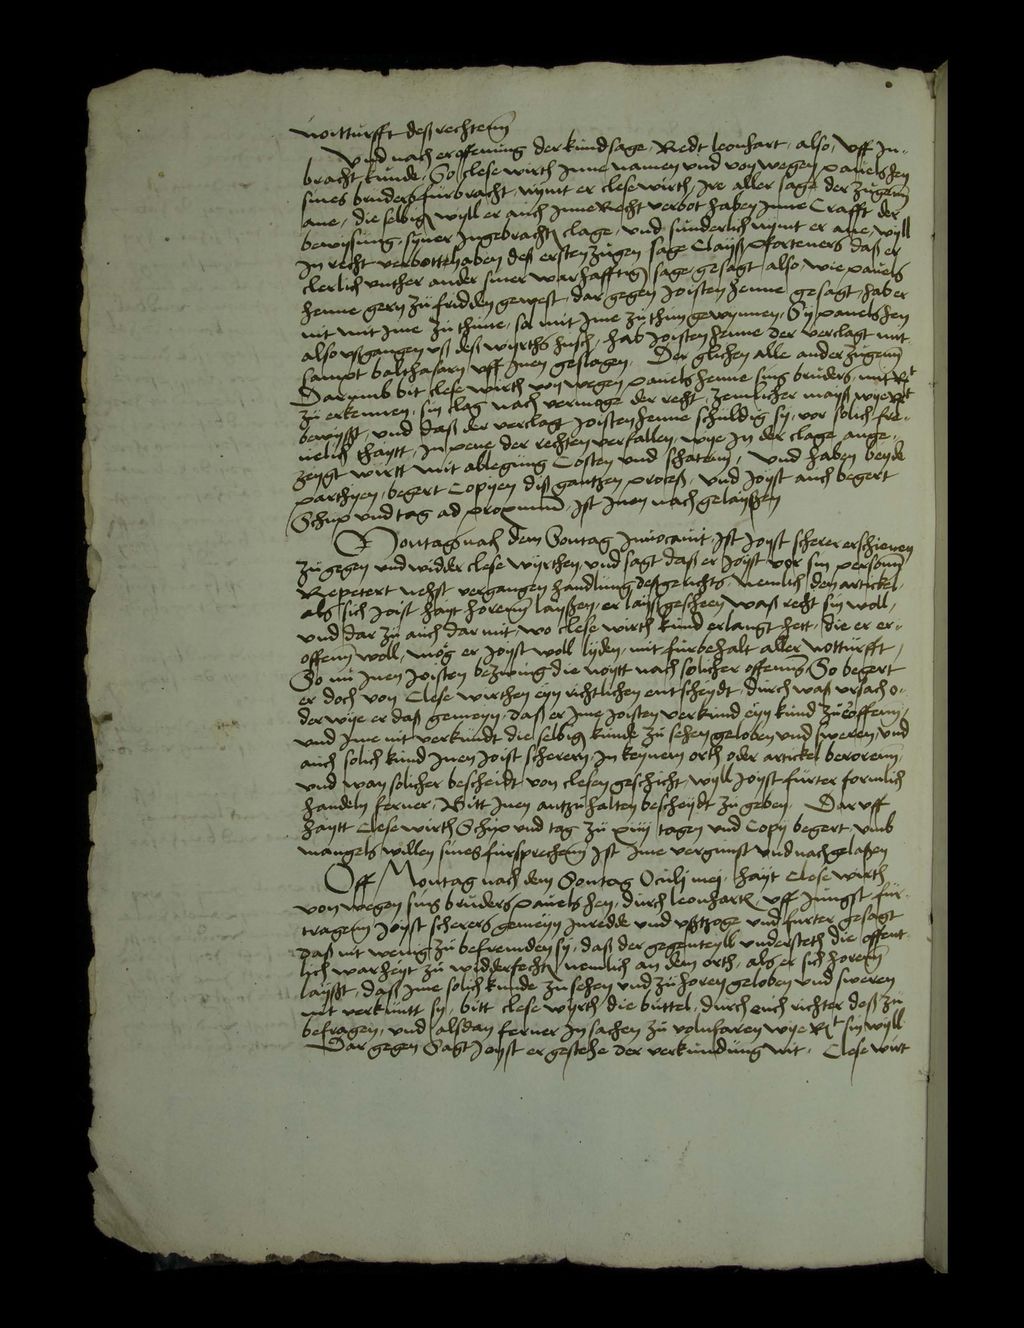 notturfft deß rechtenn
Und nach eroffenung der kundsage, Redt leonhart, also, uff in-
bracht kunde, So clese wirth inne namen und von wegen pauels hen
sines bruders furbracht, nympt er clese wirth, ire aller sage der zugenn
ane, die selbig wyll er auch inne Recht verbot haben inne Crafft der
bewysung, syner ingebracht clage, und sunderlich nympt er ane, wyll
in recht verbotten haben deß ersten zugen sage Clayß porteners daß er
clerlich unther ander siner warhafftig sage gesagt also, wie pauels
henne gern zu fridden gewest, dar gegen Joisten henne gesagt, hab er
nit mit ime zu thune, sol mit ime zu thun gewynnen, Sy pauels hen
also ußgangen uß deß wyrths husch, hab Joisten henne der verclagt mit
sampt balthasarn uff inen geslagen, Der glichen alle ander zugenn
Darumb bit clese wirth von wegen pauels henne sins bruders, mit Rt
zu erkennen, sin clag nach vermoge der recht, zemlicher mayß wye Rt
bewyßt, und daß der verclag Joisten henne schuldig sy, vor solich fre-
nelich thaytt, in pene der rechten verfallen, wye in der clage ange-
zeygt wirtt mit ablegung Costen und schatenn, Und haben beyde
parthyen, begert Copyen diß gantzen proceß, und Joyst auch begert
Schup und tag ad proximum ist inen nach gelayßen
Montags nach dem Sontag Invocavit, ist Joyst scherer erschienen
zu gegen und widder clese wyrthen, und sagt daß er Joyst vor sin personn
Repetert nehst vergangen handlung deß gerichts, nemlich den artickel
als sich Joist hayt horenn layßen, er layß gescheen waß recht sin woll,
und dar zu auch dar mit, wo clese wirth kund erlangt hett, die er er-
offenn woll, mog er Joyst woll lyden, mit furbehalt aller notturfft,
So nu inen Joisten bezwing die noytt nach solicher offenung, So begert
er doch von Clese wirthen eyn richtlichen entscheydt, durch waß ursach o-
der wye er daß gemeyn, daß er ime Joisten verkund eyn kund zu eroffenn,
und ime nit verkundt die selbig kunde zu sehen geloben und sweren, und
auch solich kund inen Joist scherern in keynem orth oder artickel berorenn
und wan solicher bescheidt von clesen geschicht, wyll Joyst furter formlich
handeln ferner, Bitt inen antzuhalten bescheydt zu geben, Dar uff
haytt Clese wirth Schup und tag zu xiiij tagen und Copy begert, umb
mangels willen sines fursprechenn ist ime vergunst und nachgelaßen
Off Montag nach dem Sontag Oculi mei, hayt Clese wirth
von wegen sins bruders pauels hen, durch leonhartt, uff jungst fur-
tragenn Joyst scherers gemeyn inredde und ußtzoge und furter gesagt
daß nit wenig zu befremden sy, daß der gegenteyll understeth die offent-
lich warheyt zu widderfecht, nemlich an dem orth, als er sich horenn
layßt, daß ime solich kunde zu sehen und zu horen geloben und sweren
nit verkuntt sy, bitt clese wyrth die buttel, durch euch richter deß zu
befragen, und alsdan ferner in sachen zu volnfaren wye Rt sin wyll
Dar gegen Sagt Joyst er gestehe der verkundung nit, Clese wirt